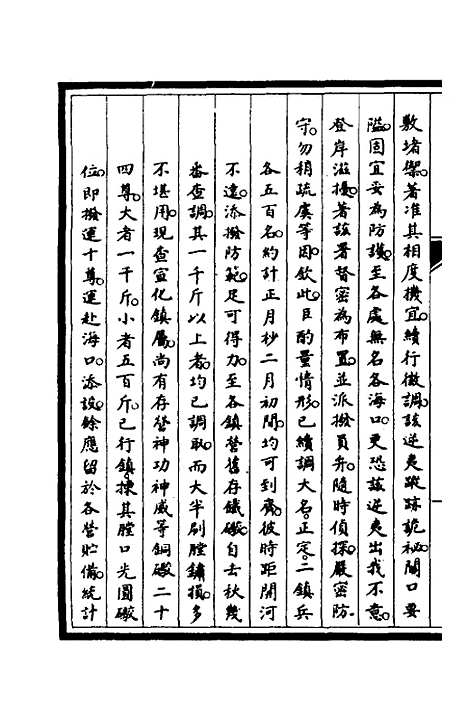 敷堵禦。著准其相度機宜。續行徵調。該逆夷蹤跡詭秘。閘口要
隘。固宜妥為防護。至各處無名各海口。更恐該逆夷出我不意。
登岸滋擾。著該署督密為布置。並派撥員弁。隨時偵探。嚴密防
守。勿稍疏虞等因。欽此。臣酌量情形。已續調大名。正定。二鎮兵
各五百名。約計正月杪二月初間。均可到齊。彼時距開河
不遠。添撥防範。足可得力。至各鎮營舊存鐵礮。自去秋幾
番查調。其一千斤以上者。均已調取。而大半刷膛鏽損。多
不堪用。現查宣化鎮屬。尚有存營神功神威等銅礮二十
四尊。大者一千斤。小者五百斤。已行鎮。揀其膛口光圓礮
位。即撥運十尊。運赴海口。添設。餘應留於各營貯備。統計